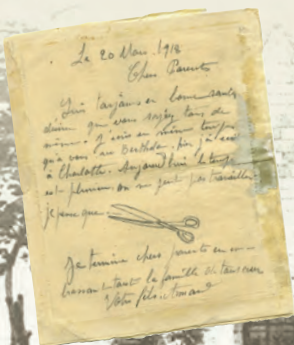 Le 20 Mars 1918
Chers Parents
Suis toujours en bonne santé
désire que vous soyez tous de
même. J'écris en même temps
qu'à vous au Berthe
à Charlotte. Aujourd'hui le temps
est pluvieux on ne peut pas travailler.
je pense que
Je termine chers parents en em-
brassant toute la famille
Votre fils Armand